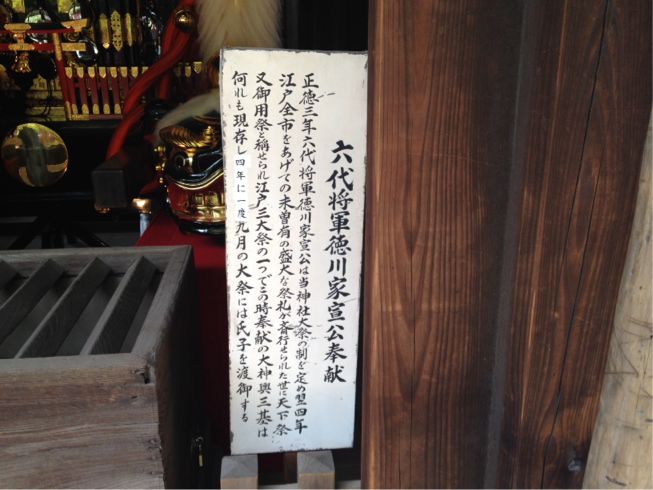 六代将軍徳川家宣公奉献
正徳三年六代将軍徳川家宣公は当神社大祭の制を定め翌四年
江戸全市をあげての未曽有の盛大な祭礼が斉行せられた世に天下祭
又御用祭と称せられ江戸三大祭の一つでこの時奉献の大神輿三基は
何れも現存し四年に一度九月の大祭には氏子を渡御する